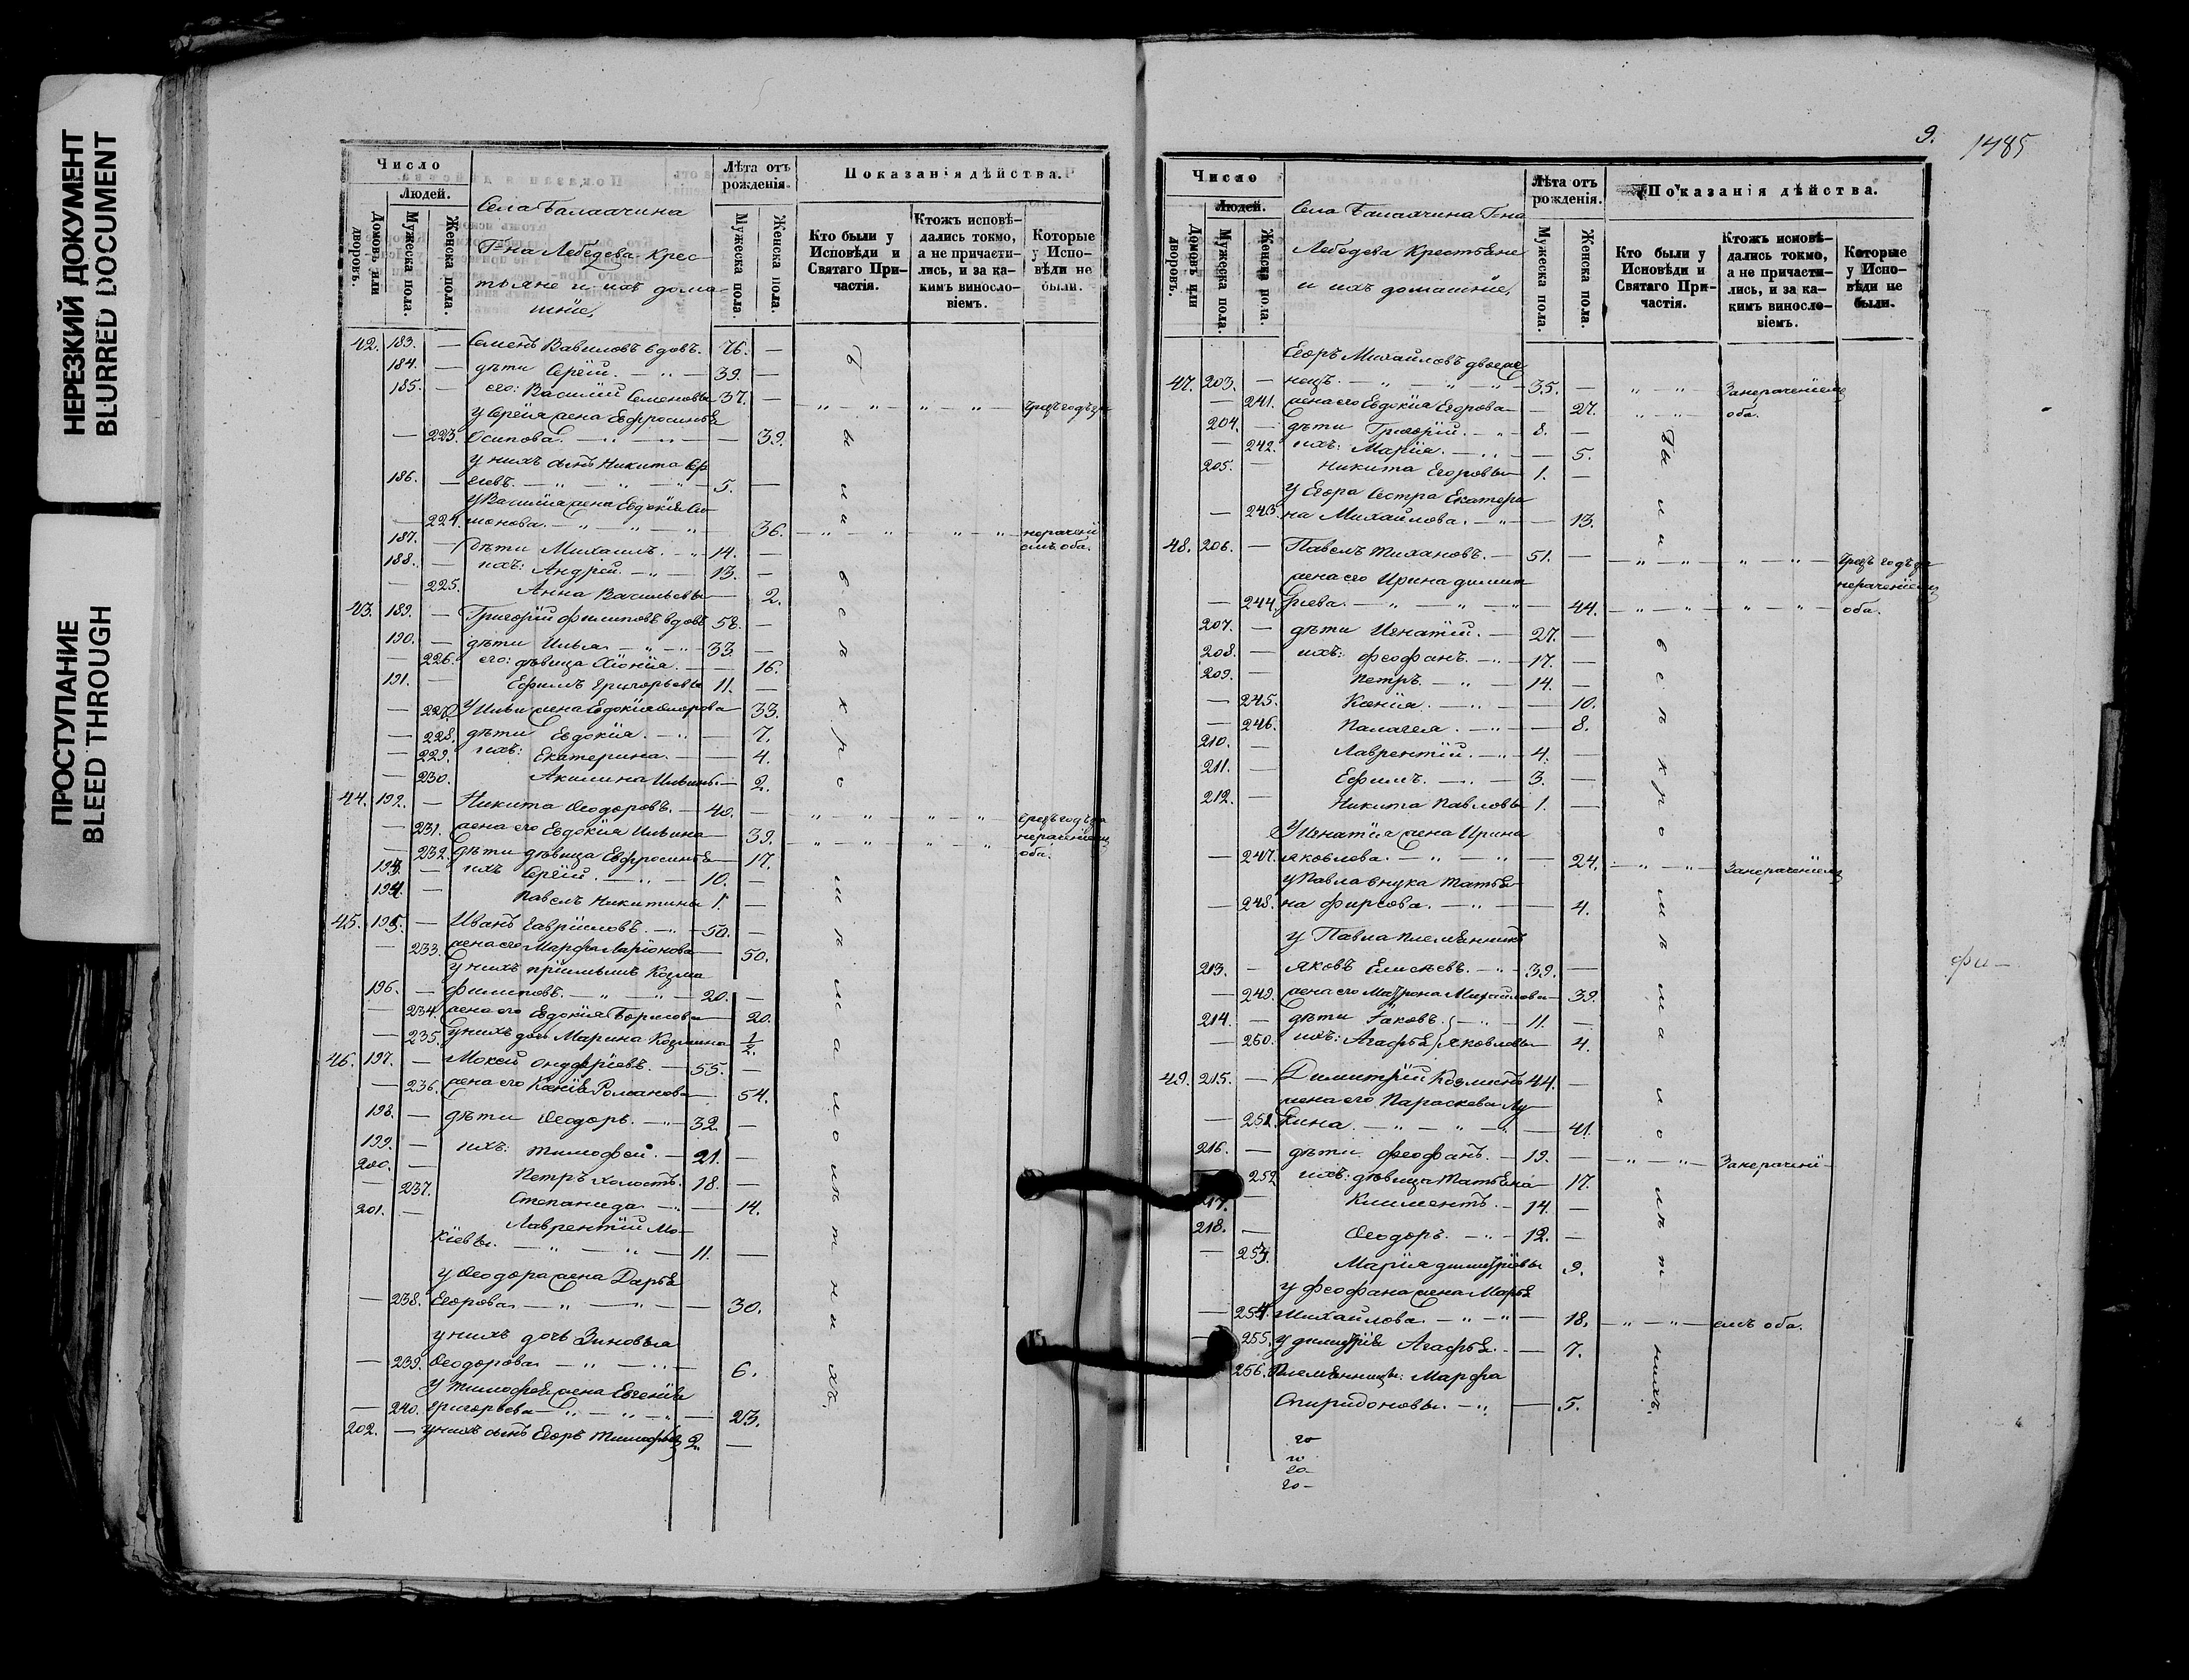 НЕРЕЗКИЙ ДОКУМЕНТ
BLURRED DOCUMENT
ПРОСТУПАНИЕ
BLEED THROUGH
Число
Людей.
Домовъ или дворовъ.
Мужеска пола.
Женска пола.
Села Балаачина
Г-на Лебедева Крес-
тьяне и ихъ дома-
шніе,
Лѣта отъ рожденія.
Мужеска пола.
Женска пола.
Показанія дѣйства.
Кто были у Исповѣди и Святаго При-частія.
Ктожъ исповѣ-дались токмо, а не причасти-лись, и за ка-кимъ винослo-віемъ.
Которые у Испо-вѣди не были.
42. 183. — Семенъ Вавиловъ вдовъ. 76. —
184. — дѣти Сергѣй. — 39. —
185. — его: Василій Семеновы 37. —
у Сергѣя жена Евфросинья
— 223. Осипова. — 39.
у нихъ сынъ Никита Сер
186. — геевъ. — 5. —
у Василія жена Евдокія
— 224. — 36. — нерачені
емъ оба.
187. — дѣти Михаилъ. — 14. —
188. — ихъ: Андрей. — 13. —
— 225. Анна Васильевы — 2.
43. 189. — Григорій Филиповъ вдовъ 58. —
190. — дѣти Илья — 33. —
— 226. его: дѣвица Хіонія. — 16.
191. — Ефимъ Григорьевы 11. —
— 227. У Ильи жена Евдокія — 33.
— 228. дѣти Евдокія. — 7.
— 229. ихъ: Екатерина. — 4.
— 230. Акилина Ильины — 2.
44. 192. — Никита Ѳеодоровъ. — 40. —
— 231. жена его Евдокія Ильина — 39. нераченіемъ
— 232. дѣти дѣвица Евфросинья — 17. оба.
193. — ихъ Сергѣй. — 10. —
194. — Павелъ Никитины 1. —
45. 195. — Иванъ Гавріиловъ. — 50. —
— 233. жена его Марфа Ларіонова — 50.
у нихъ пріимышъ Козма
196. — Филиповъ. — 20. —
— 234. жена его Евдокія Борисова — 20.
— 235. у нихъ дочь Марина Козмина 1/2.
46. 197. — Мокей Онуфріевъ. — 55. —
— 236. жена его Ксенія Романова — 54.
198. — дѣти Ѳеодоръ. — 32. —
199. — ихъ: Тимофей. — 21. —
200. — Петръ холостъ. 18. —
— 237. Степанида — 14.
201. — Лаврентій Мо-
кіевы. — 11. —
у Ѳеодора жена Дарья
— 238. Егорова. — 30.
у нихъ дочь Зиновья
— 239. Ѳеодорова — 6.
у Тимофея жена Евгенія
— 240. Григорьева — 23.
202. — у нихъ сынъ Егоръ Тимофеевъ 2. —
были всѣ кромѣ малолѣтнихъ.
9. 1485
Число
Людей.
Домовъ или дворовъ.
Мужеска пола.
Женска пола.
Села Балаачина Г-на
Лебедева Крестьяне
и ихъ домашніе,
Лѣта отъ рожденія.
Мужеска пола.
Женска пола.
Показанія дѣйства.
Кто были у Исповѣди и Святаго При-частія.
Ктожъ исповѣ-дались токмо, а не причасти-лись, и за ка-кимъ винослo-віемъ.
Которые у Испо-вѣди не были.
Егоръ Михайловъ двоеже
47. 203. — нецъ. — 35. — Занераченіемъ
— 241. жена его Евдокія Егорова — 27. оба.
204. — дѣти Григорій. — 8. —
— 242. ихъ: Марія. — 5.
205. — Никита Егоровы — 1. —
у Егора сестра Екатери
— 243. на Михайлова. — 13.
48. 206. — Павелъ Тихановъ. — 51. —
жена его Ирина Димит нераченіемъ
— 244. ріева. — 44. — оба.
207. — дѣти Игнатій. — 27. —
208. — ихъ: Феофанъ. — 17. —
209. — Петръ. — 14. —
— 245. Ксенія. — 10.
— 246. Палагея. — 8.
210. — Лаврентій. — 4. —
211. — Ефимъ. — 3. —
212. — Никита Павловы 1. —
У Игнатія жена Ирина
— 247. Яковлева. — 24. — Занераченіемъ
у Павла внука Татья-
— 248. на Фирсова. — 4.
у Павла племянникъ
213. — Яковъ Елисѣевъ. — 39. —
— 249. жена его Матрона Михайлова — 39.
214. — дѣти Іаковъ. — 11. —
— 250. ихъ: Агафья Яковлевы — 4.
49. 215. — Димитрій Козминъ 44. —
жена его Параскева Лу-
— 251. кина. — 41.
216. — дѣти Феофанъ. — 19. — Занерачені-
— 252. ихъ: дѣвица Татьяна — 17.
217. — Климентъ. — 14. —
218. — Ѳеодоръ. — 12. —
— 253. Марія Димитріевы 9.
у Феофана жена Марья
— 254. Михайлова. — 18. — емъ оба.
— 255. у Димитрія Агафья. — 7.
256. Племянницы: Марфа
Спиридоновы. — 5.
были всѣ кромѣ малолѣтнихъ.
фи-